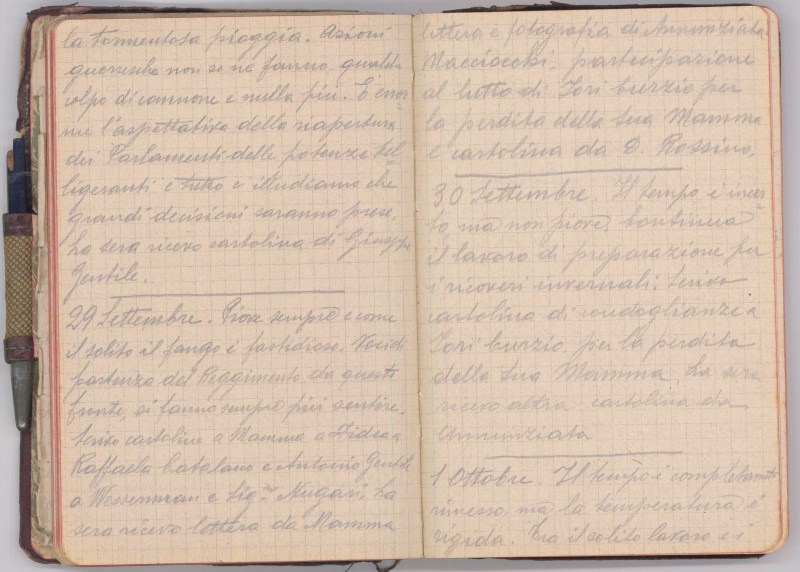 la tormentosa pioggia. Azioni
guerresche non se ne fanno, qualche
colpo di cannone e nulla più. È enor-
me l'aspettativa della riapertura
dei Parlamenti delle potenze bel-
ligeranti e tutto e illudiamo che
grandi decisioni saranno prese.
La sera ricevo cartolina di Giuseppe
Gentile.
29 Settembre. Piove sempre e come
il solito il fango è fastidioso. Voci di
partenza del Reggimento da questo
fronte, si fanno sempre più sentire.
Scrivo cartoline a Mamma a
Raffaela Catalano e Antonio Gentile
a Wesserman e Sig.na Nugari. La
sera ricevo lettera da Mamma
lettera e fotografia di Annunziata
Macciocchi, partecipazione
al lutto di Tori Curzio per
la perdita della sua Mamma
e cartolina da D. Rossino.
30 Settembre. Il tempo è incer-
to, ma non piove. Continua
il lavoro di preparazione per
i ricoveri invernali. Scrivo
cartolina di condoglianze a
Tori Curzio, per la perdita
della sua Mamma. La sera
ricevo altra cartolina da
Annunziata
1 Ottobre. Il tempo è completamente
rimesso, ma la temperatura è
rigida. Tra il solito lavoro e i